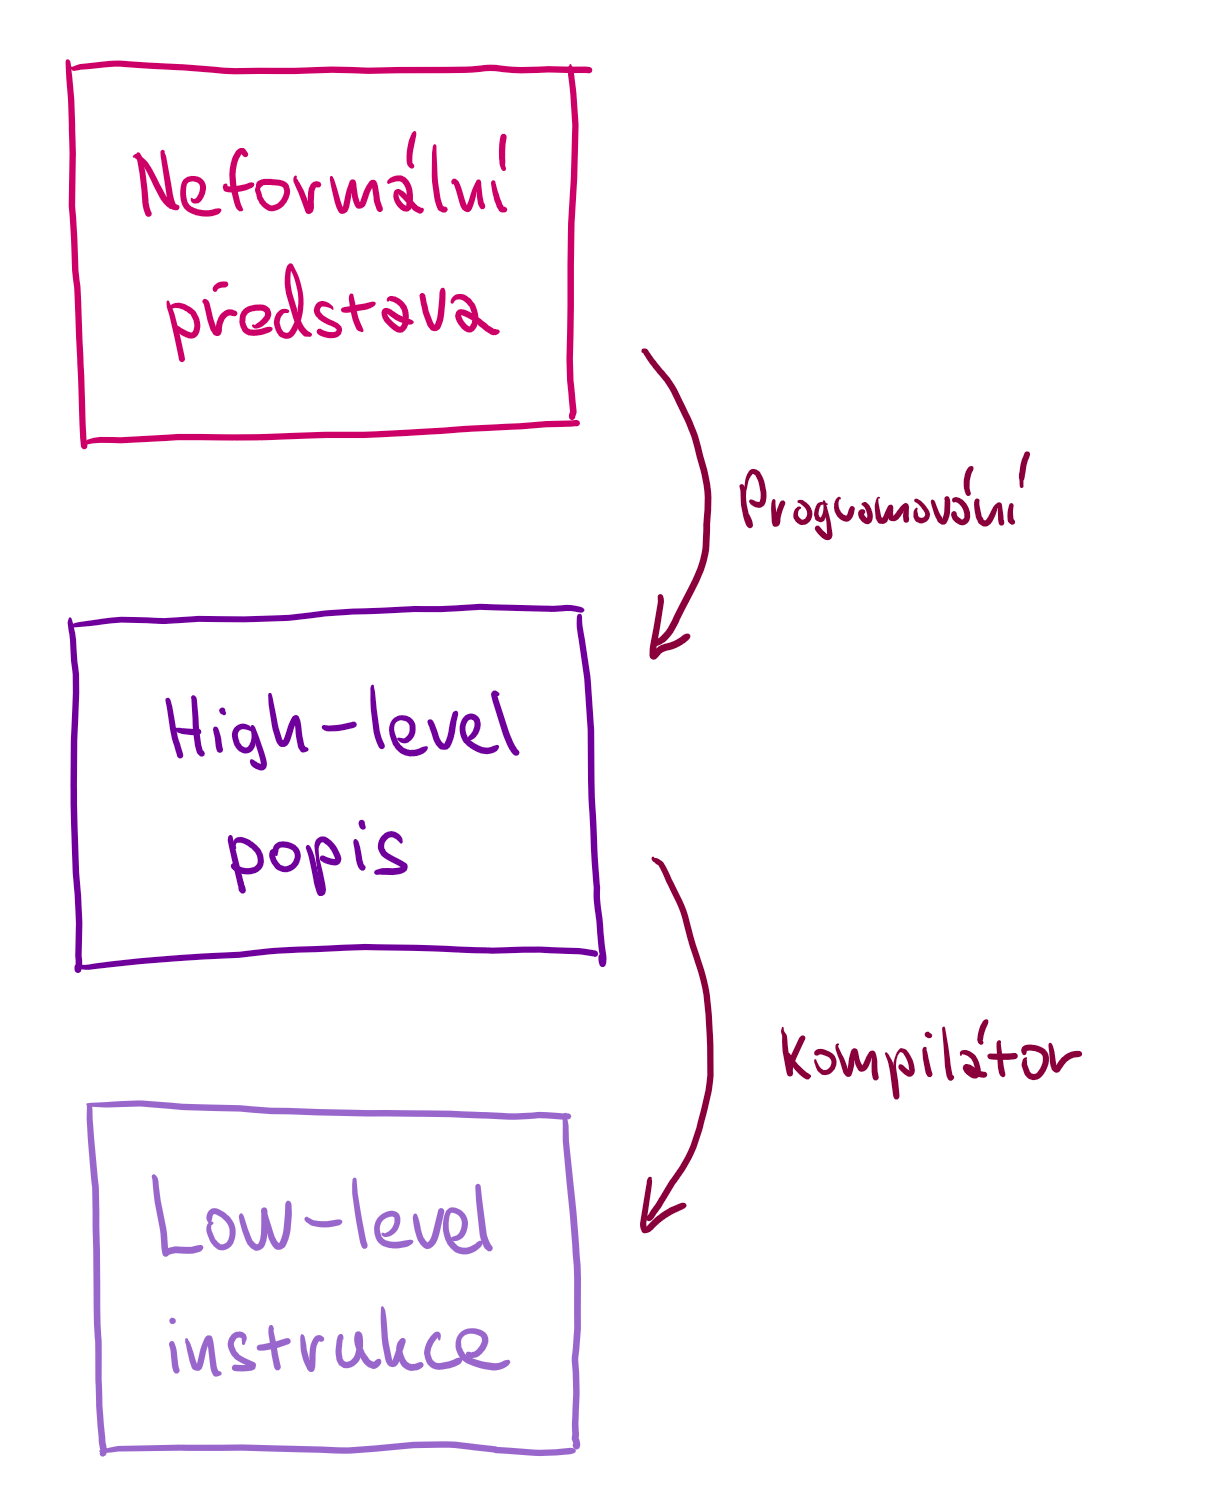 Neformální
představa
Programování
High-level
popis
Kompilátor
Low-level
instrukce